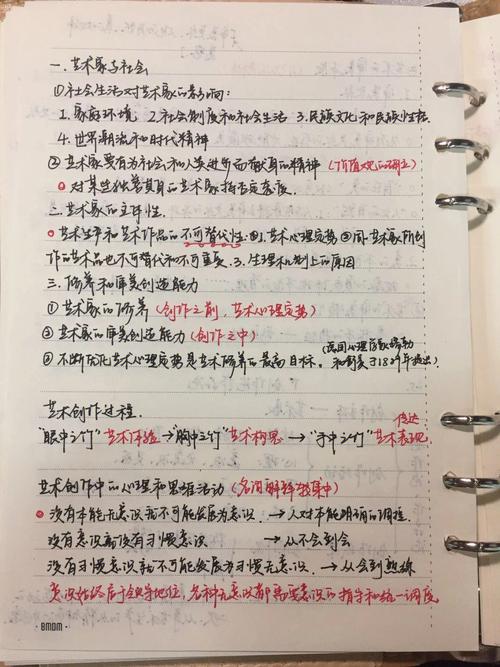 一. 艺术家与社会
①社会生活对艺术家的影响:
1. 家庭环境 2. 社会制度和社会生活 3. 民族文化和民族性格
4. 世界潮流和时代精神
②艺术家要有为社会和人类进步而献身的精神 (价值观的确立)
对某些独善其身的艺术家持否定态度。
二. 艺术家的主体性.
艺术生产和艺术作品的不可替代性.①1.艺术心理定势 ②同一艺术家所创
作的艺术品也不可替代和不可重复. 3. 生理机制上的原因
三. 修养和审美创造能力
① 艺术家的修养 (创作之前, 艺术心理定势)
② 艺术家的审美创造能力 (创作之中)
③ 不断优化艺术心理定势是艺术修养的最高目标。
艺术创作过程.
"眼中之竹"艺术体验→"胸中之竹"艺术构思 → "手中之竹"艺术表现
传达
艺术创作中的心理和思维活动 (名词解释较集中)
没有本能无意识就不可能发展为意识. → 人对本能明确的调控.
没有意识就没有习惯无意识 → 从不会到会
没有习惯意识就不可能发展为习惯无意识. → 从会到熟练
意识始终居于领导地位, 各种无意识都需要意识的指导和统一调度
BMDM